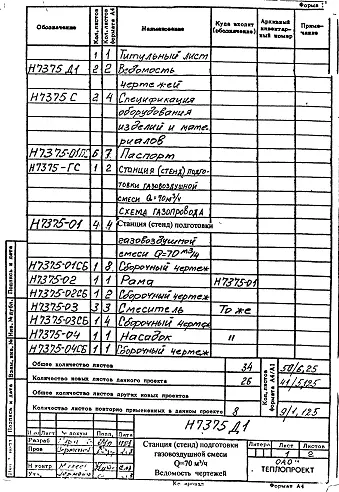 Форма 1
Обозначение Кол. листов Кол. листов формата А4 Наименование Куда входит (обозначение) Архивный инвентарный номер Примечание
1 1 Титульный лист
Н7375 Д1 2 2 Ведомость
чертежей
Н7375 С 2 4 Спецификация
оборудования
изделий и мате-
риалов
Н7375-01ПС 6 7 Паспорт
Н7375-ГС 1 2 Станция (стенд) подго-
товки газовоздушной
смеси Q=70м³/ч
схема газопровода
Н7375-01 4 4 Станция (стенд) подготовки
газовоздушной
смеси Q=70 м³/ч
Н7375-01СБ 1 8 Сборочный чертеж
Н7375-02 1 1 Рама Н7375-01
Н7375-02СБ 1 2 Сборочный чертеж
Н7375-03 3 3 Смеситель То же
Н7375-03СБ 1 4 Сборочный чертеж
Н7375-04 1 1 Насадок "
Н7375-04СБ 1 1 Сборочный чертеж
Общее количество листов 34 50/6,25
Количество новых листов данного проекта 26 41/5,125
Количество листов других новых проектов
Количество листов повторно примененных в данном проекте 8 9/1,125
Кол. листов формата А4/А1
Н7375 Д1
Лист № докум Подп. Дата
Разраб
Пров
Н контр
Утв
Станция (стенд) подготовки
газовоздушной смеси
Q=70 м³/ч
Ведомость чертежей
Литера Лист Листов
1 2
ОАО
ТЕПЛОПРОЕКТ
Формат А4
Подпись и дата
Инв. № дубл.
Взам. инв. №
Подпись и дата